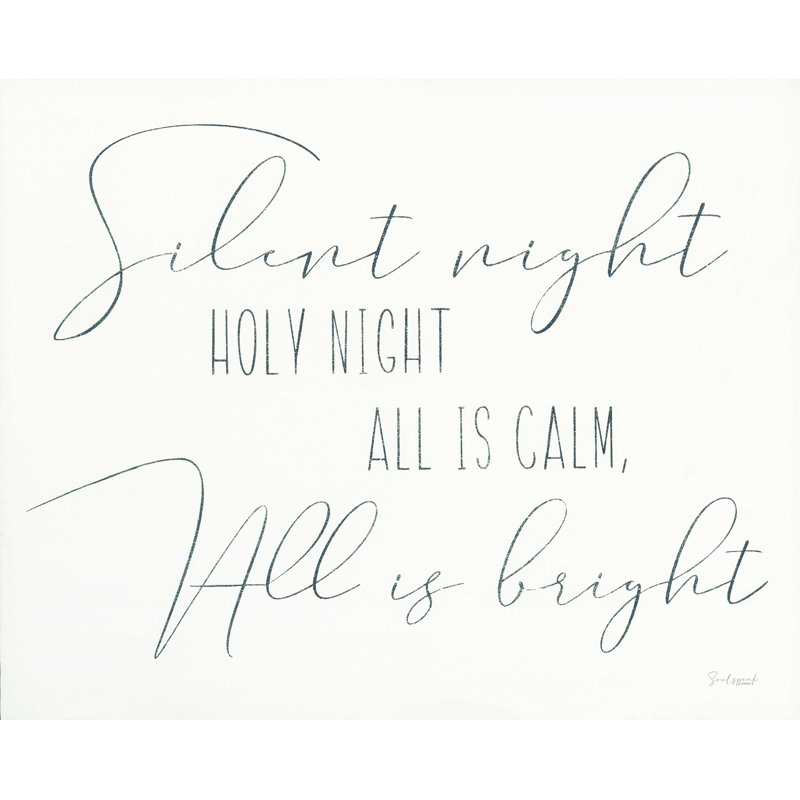 Silent night
HOLY NIGHT
ALL IS CALM,
All is bright
Soulspeak